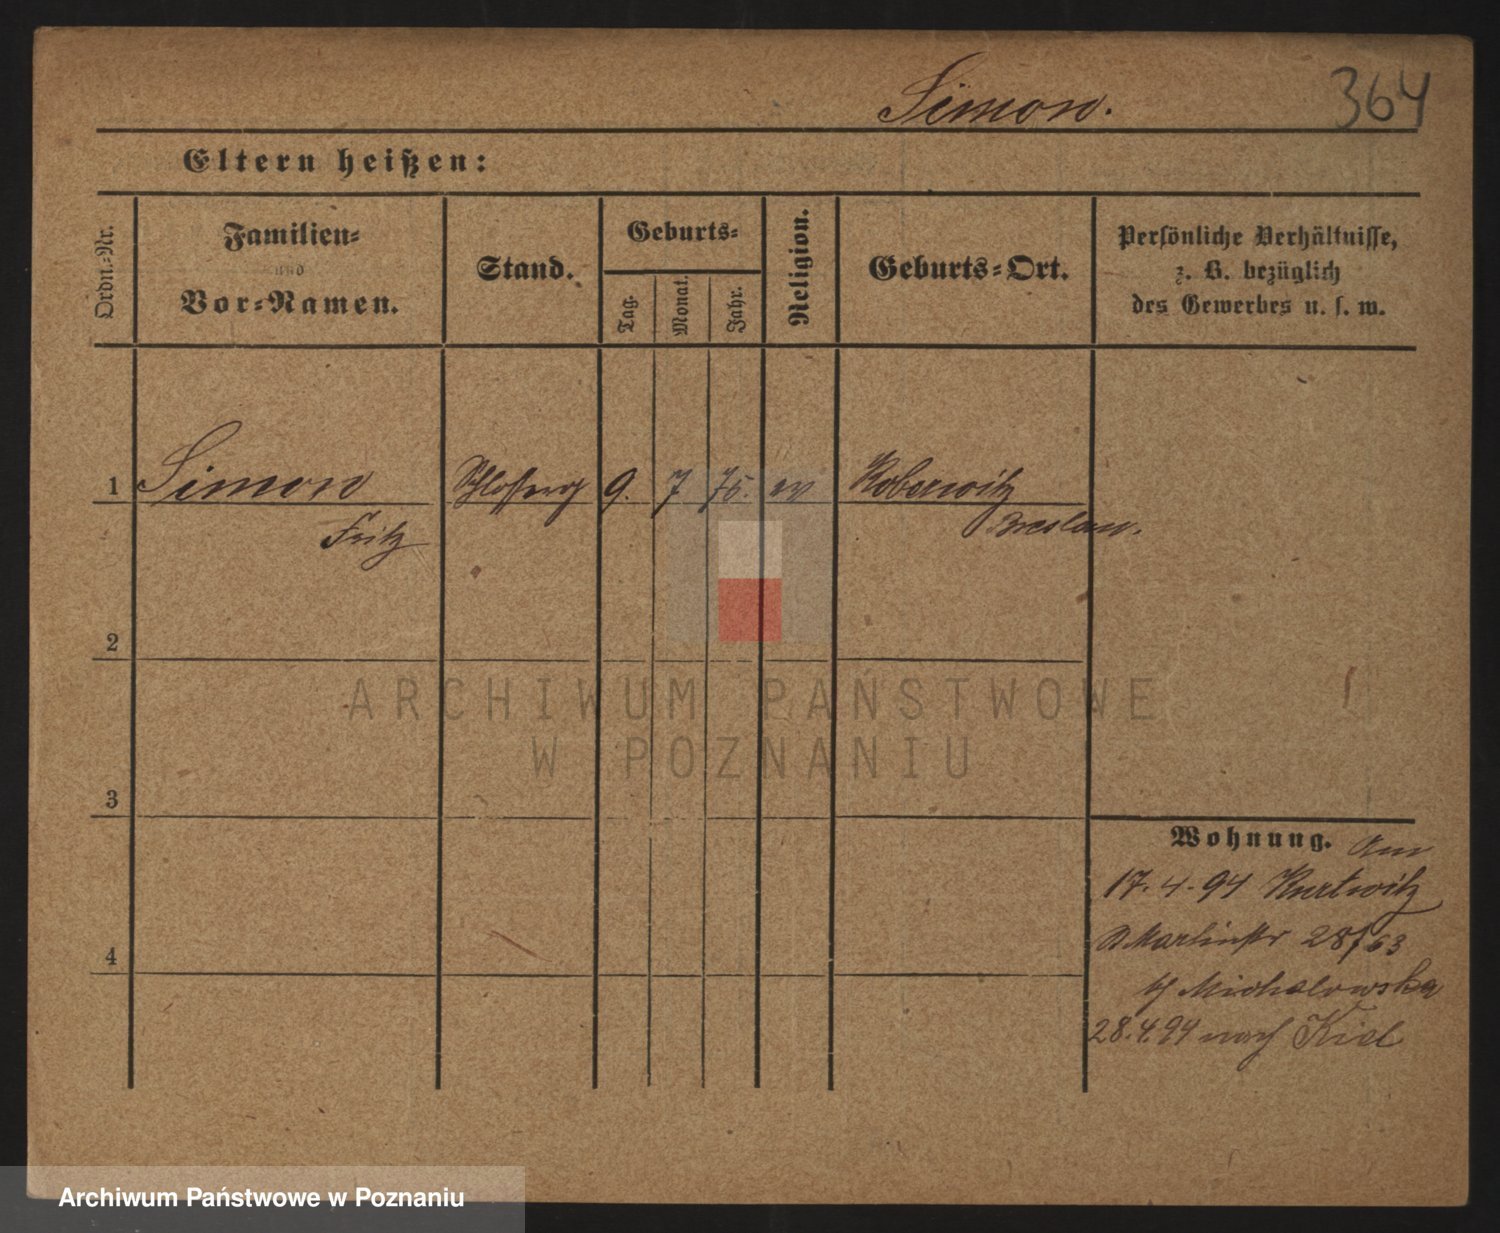 Simon. 364
Eltern heißen:
Ordn.-Nr.
Familien-
und
Vor-Namen.
Stand.
Geburts-
Tag.
Monat.
Jahr.
Religion.
Geburts-Ort.
Persönliche Verhältnisse,
z. B. bezüglich
des Gewerbes u. s. w.
1 Simon 9. 7 75. ev Koberwitz
Fritz Breslau.
2
3
4
Wohnung. Am
17.4.94 Kurtwitz
St Martinstr 28/63
b/ Michalowska
28.4.94 nach Kiel
ARCHIWUM PAŃSTWOWE
W POZNANIU
Archiwum Państwowe w Poznaniu